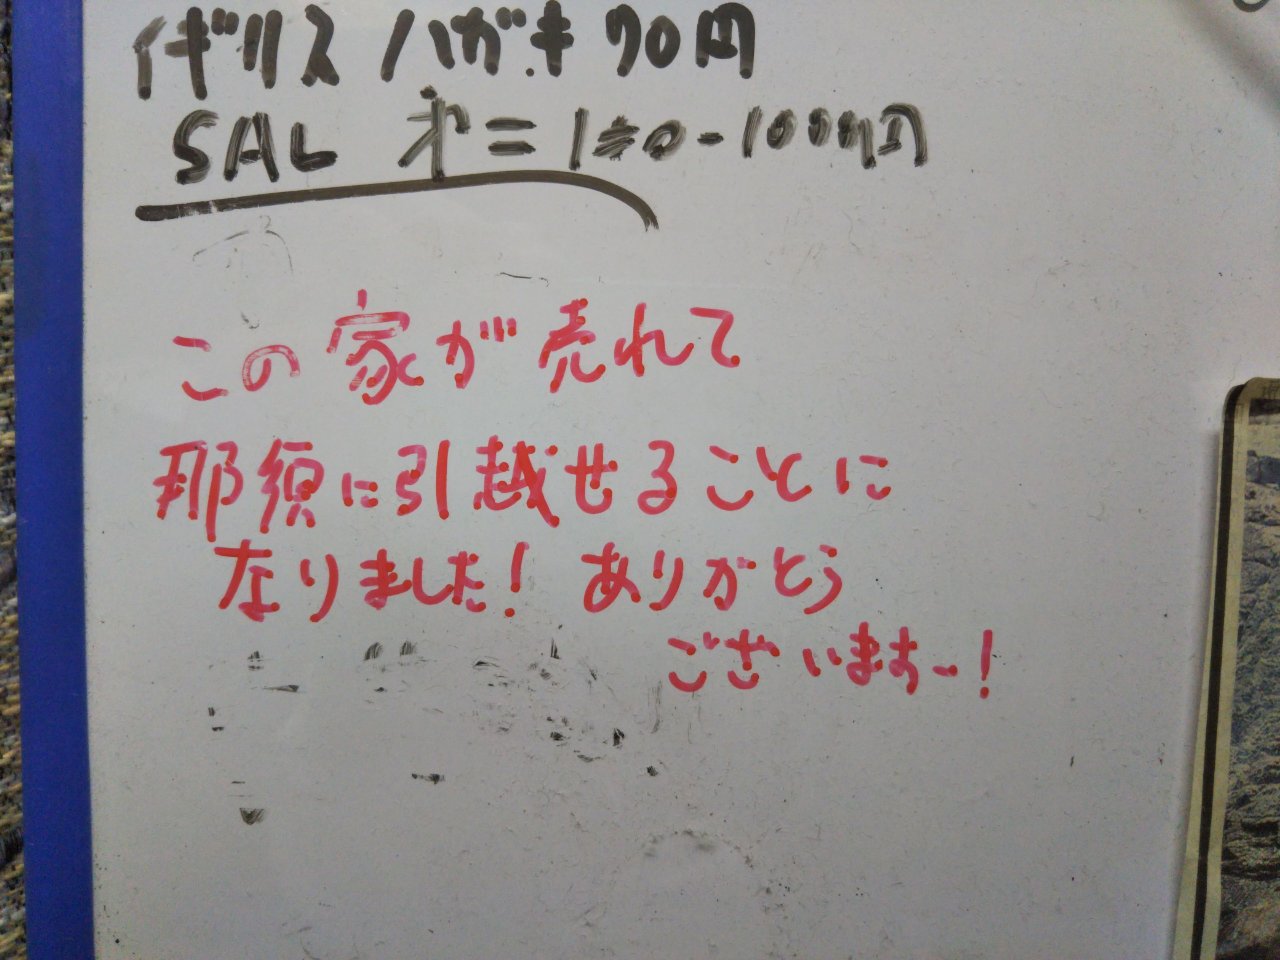 イギリス ハガキ 70円
SAL
この家が売れて
那須に引越せることに
なりました! ありがとう
ございますー!